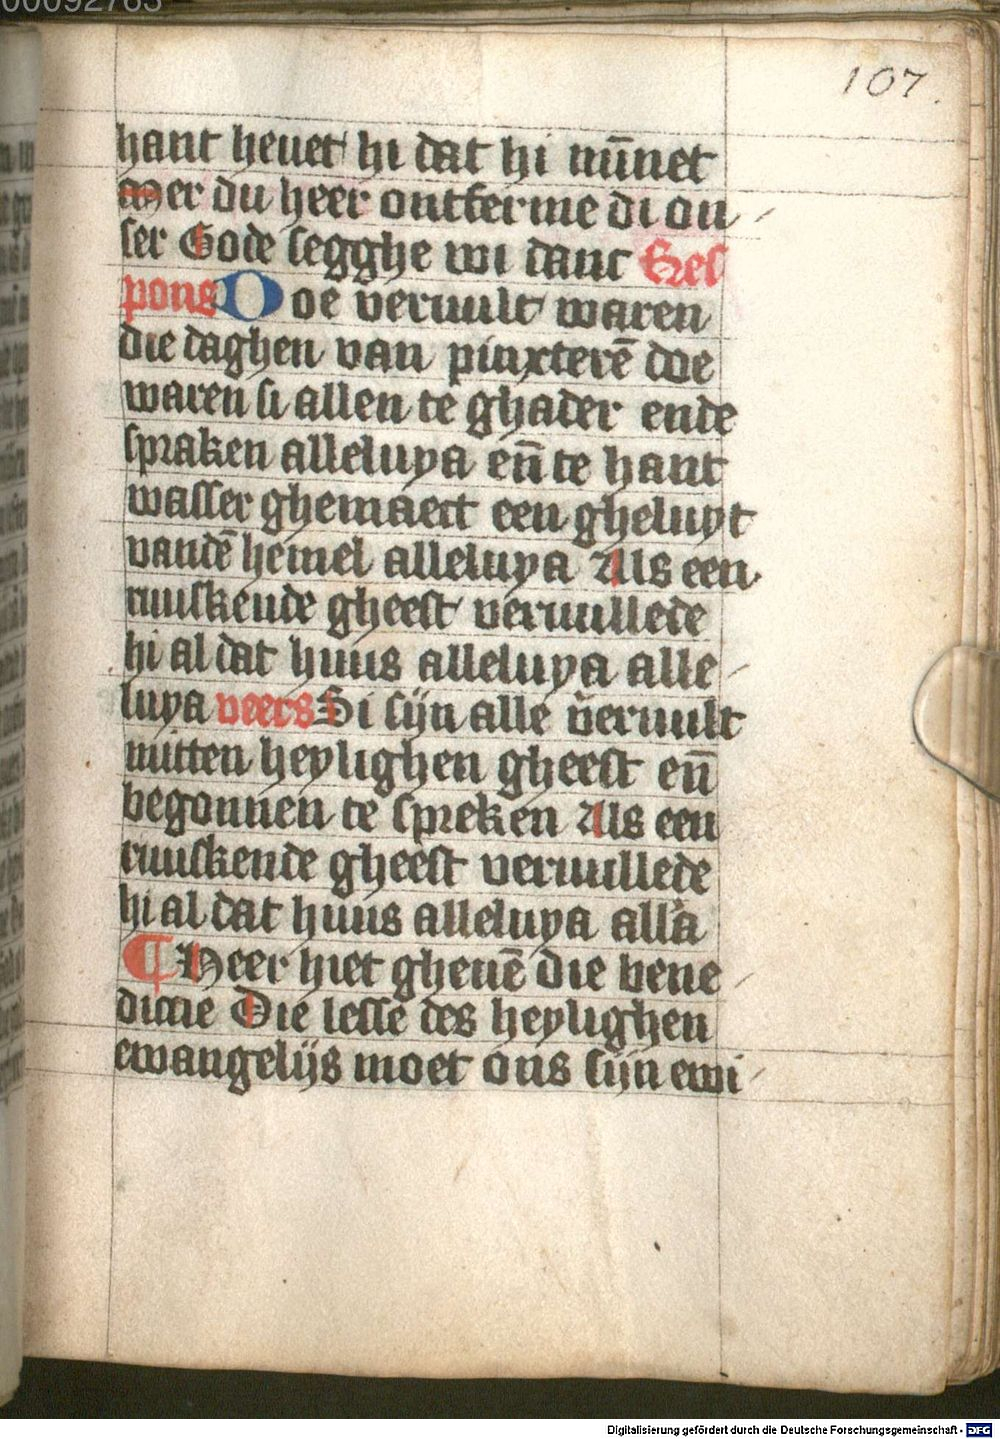 00092763
107.
hant heuet hi dat hi mīnet
Mer du heer ontferme di on
ser Gode segghe wi danc Res
pons Doe veruult waren
die daghen van pinxterē doe
waren si allen te ghader ende
spraken alleluya eñ te hant
wasser ghemaect een gheluyt
vandē hemel alleluya Als een
ruuskende gheest veruullede
hi al dat huus alleluya alle
luya veers Si sijn alle veruult
mitten heylighen gheest eñ
begonnen te spreken Als een
ruuskende gheest veruullede
hi al dat huus alleluya all'a
¶ Heer hiet gheuē die bene
dictie Die lesse des heylighen
ewangelijs moet ons sijn ewi
Digitalisierung gefördert durch die Deutsche Forschungsgemeinschaft - DFG